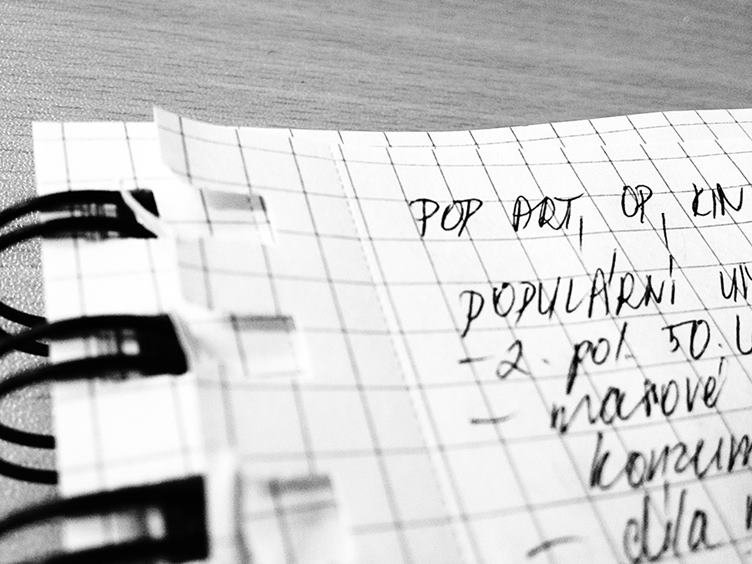 POP ART, OP, KIN
POPULÁRNÍ UM
- 2. pol. 50. L
- masové
konzum
- díla